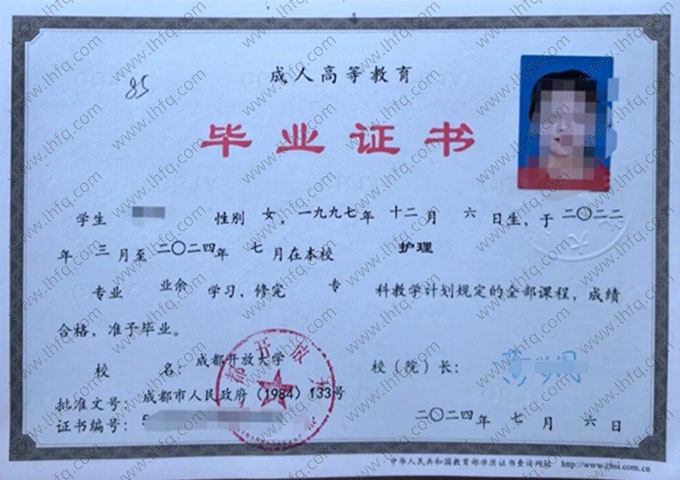 成人高等教育
85
毕业证书
学生 性别 女，一九九七年 十二月 六日生，于二〇二二
年 三月至二〇二四年 七月在本校 护理
专业 业余 学习，修完 专 科教学计划规定的全部课程，成绩
合格，准予毕业。
校 名：成都开放大学 校（院）长：
批准文号：成都市人民政府（1984）133号
证书编号：5
二〇二四年 七月 六日
中华人民共和国教育部学历证书查询网站 http://www.chsi.com.cn
www.lhfq.com